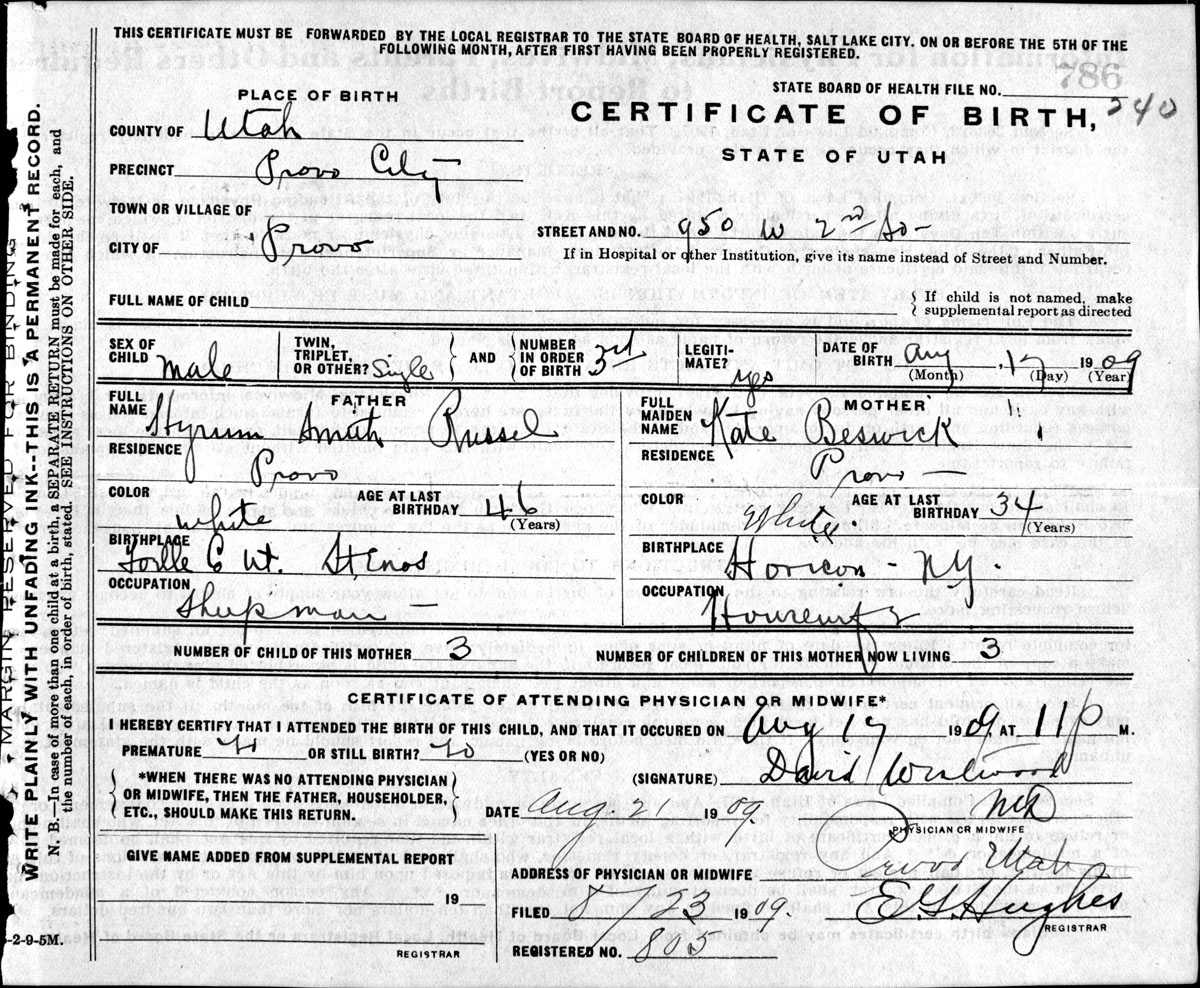 THIS CERTIFICATE MUST BE FORWARDED BY THE LOCAL REGISTRAR TO THE STATE BOARD OF HEALTH, SALT LAKE CITY. ON OR BEFORE THE 5TH OF THE
FOLLOWING MONTH, AFTER FIRST HAVING BEEN PROPERLY REGISTERED.
786
STATE BOARD OF HEALTH FILE NO.
240
CERTIFICATE OF BIRTH,
STATE OF UTAH
PLACE OF BIRTH
COUNTY OF Utah
PRECINCT Provo City
TOWN OR VILLAGE OF
CITY OF Provo
STREET AND NO. 950 W 2nd So-
If in Hospital or other Institution, give its name instead of Street and Number.
FULL NAME OF CHILD
{ If child is not named, make
supplemental report as directed
SEX OF CHILD Male
TWIN, TRIPLET, OR OTHER? Single
AND
NUMBER IN ORDER OF BIRTH 3rd
LEGITIMATE? yes
DATE OF BIRTH Aug, 17 1909
(Month) (Day) (Year)
FATHER
FULL NAME Hyrum Smith Russel
RESIDENCE Provo
COLOR White
AGE AT LAST BIRTHDAY 46
(Years)
BIRTHPLACE Ut.
OCCUPATION Sheepman
MOTHER
FULL MAIDEN NAME Kate Beswick
RESIDENCE Provo
COLOR White
AGE AT LAST BIRTHDAY 34
(Years)
BIRTHPLACE Horicon - NY.
OCCUPATION Housewife
NUMBER OF CHILD OF THIS MOTHER 3
NUMBER OF CHILDREN OF THIS MOTHER NOW LIVING 3
CERTIFICATE OF ATTENDING PHYSICIAN OR MIDWIFE*
I HEREBY CERTIFY THAT I ATTENDED THE BIRTH OF THIS CHILD, AND THAT IT OCCURED ON Aug 17 1909, AT 11 P M.
PREMATURE OR STILL BIRTH? No (YES OR NO)
*WHEN THERE WAS NO ATTENDING PHYSICIAN
OR MIDWIFE, THEN THE FATHER, HOUSEHOLDER,
ETC., SHOULD MAKE THIS RETURN.
(SIGNATURE) David Westwood
MD
PHYSICIAN OR MIDWIFE
DATE Aug. 2 1909.
GIVE NAME ADDED FROM SUPPLEMENTAL REPORT
19
REGISTRAR
ADDRESS OF PHYSICIAN OR MIDWIFE Provo Utah
FILED 8/23 1909.
E G Hughes
REGISTRAR
REGISTERED NO. 805
MARGIN RESERVED FOR BINDING
WRITE PLAINLY WITH UNFADING INK---THIS IS A PERMANENT RECORD.
N. B.—In case of more than one child at a birth, a SEPARATE RETURN must be made for each, and
the number of each, in order of birth, stated. SEE INSTRUCTIONS ON OTHER SIDE.
-2-9-5M.